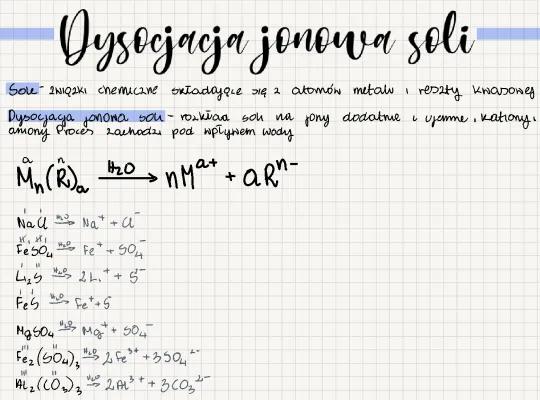 Dysocjacja jonowa soli
Sole - związki chemiczne składające się z atomów metalu i reszty kwasowej
Dysocjacja jonowa soli - rozkład soli na jony dodatnie i ujemne, kationy i
aniony Proces zachodzi pod wpływem wody
Mₙ(R)ₐ H₂O → nMᵃ⁺ + aRⁿ⁻
NaCl H₂O → Na⁺ + Cl⁻
FeSO₄ H₂O → Fe⁺ + SO₄⁻
Li₂S H₂O → 2Li⁺ + S²⁻
FeS H₂O → Fe⁺ + S
MgSO₄ H₂O → Mg⁺ + SO₄⁻
Fe₂(SO₄)₃ H₂O → 2Fe³⁺ + 3SO₄²⁻
Al₂(CO₃)₃ H₂O → 2Al³⁺ + 3CO₃²⁻